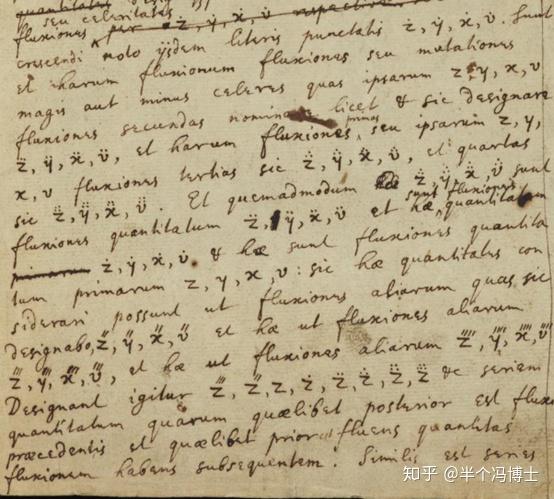 quantitatis
seu celeritates
fluxiones per ż, ẏ, ẋ, v̇ respective
crescendi noto ijsdem literis punctatis ż, ẏ, ẋ, v̇. Sunt
et harum fluxionum fluxiones seu mutationes
magis aut minus celeres quas ipsarum z, y, x, v
fluxiones secundas nominare licet & sic designare
primas
z̈, ÿ, ẍ, v̈, et harum fluxiones, seu ipsarum z, y,
x, v fluxiones tertias sic z⃛, y⃛, x⃛, v⃛, et quartas
sic z⃜, y⃜, x⃜, v⃜ Et quemadmodum z⃛, y⃛, x⃛, v⃛ sunt
sunt fluxiones
fluxiones quantitatum z̈, ÿ, ẍ, v̈ et hæ quantitatum
primarum ż, ẏ, ẋ, v̇ & hæ sunt fluxiones quantita
tum primarum z, y, x, v: sic hæ quantitates con
siderari possunt ut fluxiones aliarum quas sic
designabo, z', y', x', v' et hæ ut fluxiones aliarum
z'', y'', x'', v'', et hæ ut fluxiones aliarum z''', y''', x''', v'''
Designant igitur z''', z'', z', z, ż, z̈, z⃛, z⃜ &c seriem
quantitatum quarum quælibet posterior est fluxio
præcedentis et quælibet prior fluens quantitas
fluxionem habens subsequentem. Similis est series
知乎 @半个冯博士